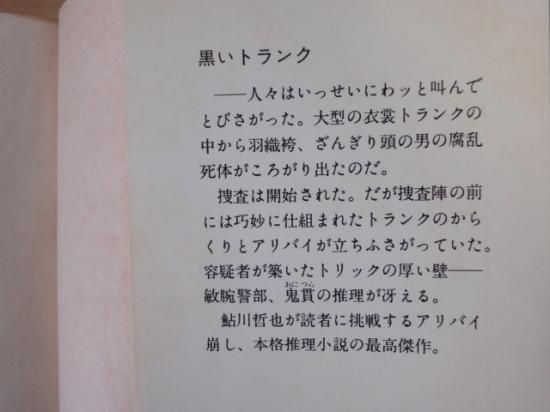 黒いトランク
――人々はいっせいにわッと叫んで
とびさがった。大型の衣裳トランクの
中から羽織袴、ざんぎり頭の男の腐乱
死体がころがり出たのだ。
捜査は開始された。だが捜査陣の前
には巧妙に仕組まれたトランクのから
くりとアリバイが立ちふさがっていた。
容疑者が築いたトリックの厚い壁――
おにつら
敏腕警部、鬼貫の推理が冴える。
鮎川哲也が読者に挑戦するアリバイ
崩し、本格推理小説の最高傑作。